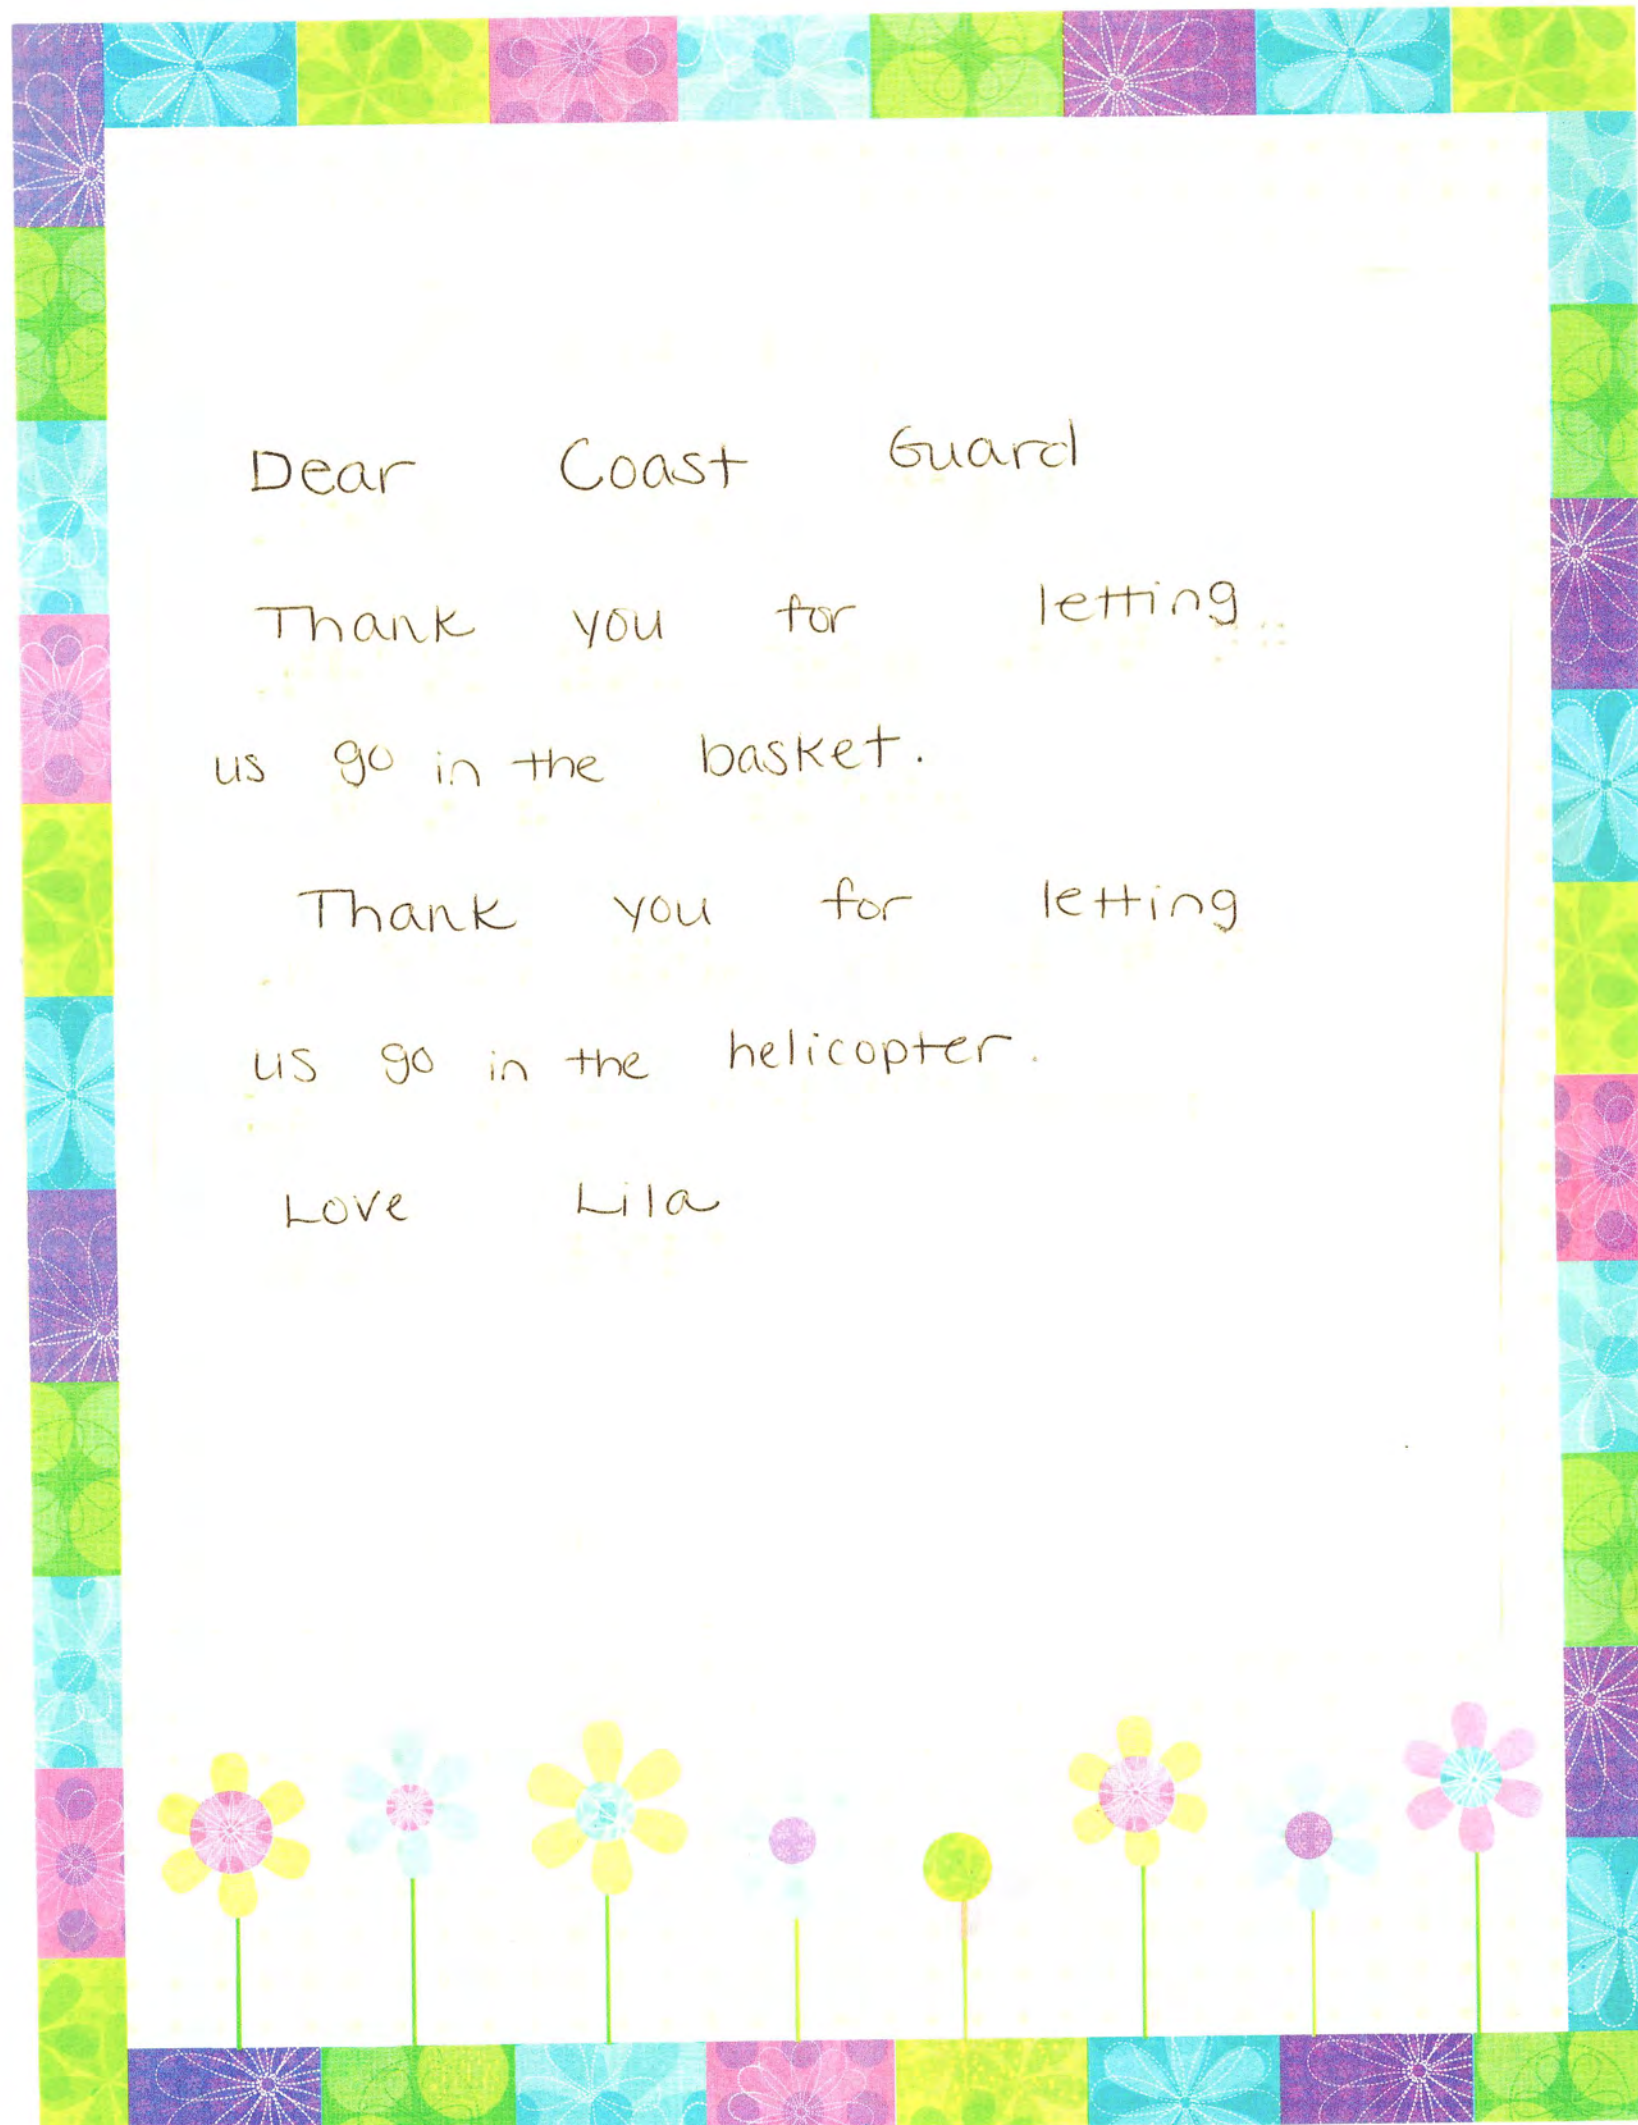 Dear Coast Guard
Thank you for letting
us go in the basket.
Thank you for letting
us go in the helicopter.
Love Lila